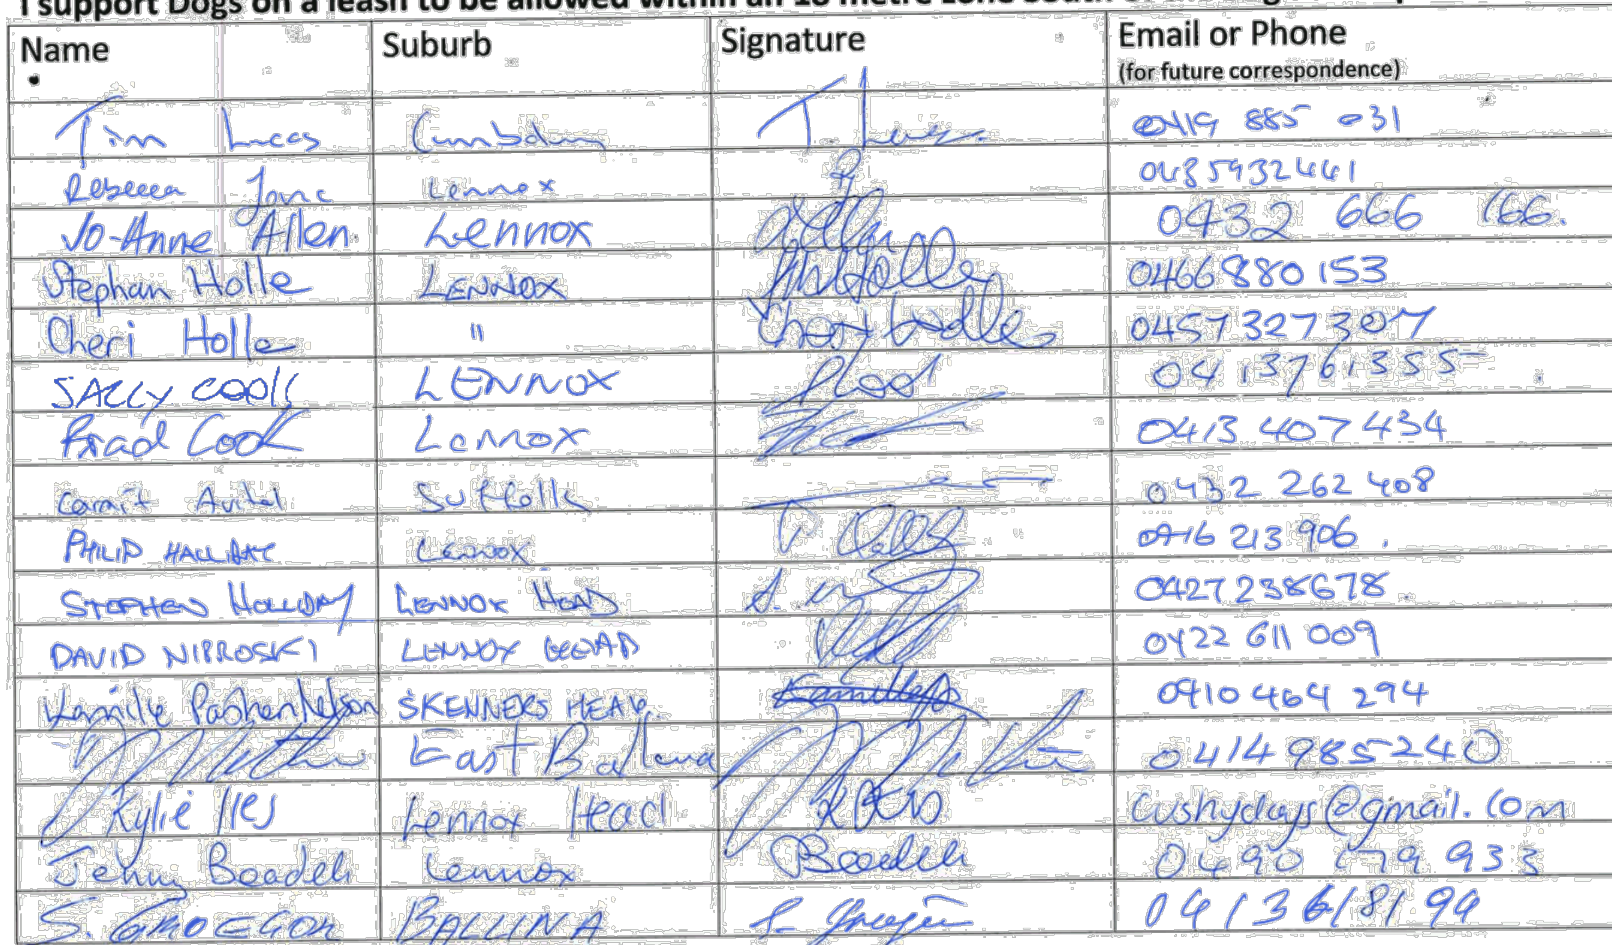 I support Dogs on a leash to be allowed within an
Name Suburb Signature Email or Phone
(for future correspondence)
Tim Lucas 0419 885 031
Rebecca Jane Lennox 0435932441
Jo-Anne Allen Lennox 0432 666 166.
Stephan Holle LENNOX 0466 880 153
Cheri Holle " 0457 327 307
SALLY COOK LENNOX 0413761355
Brad Cook Lennox 0413 407 434
Carmit Avital Suffolk 0432 262 408
PHILIP HALLIDAY Lennox 0416 213 906.
STEPHEN HOLLIDAY LENNOX HEAD 0427238678.
DAVID NIBROSKI LENNOX HEAD 0422 611 009
Kamilie SKENNERS HEAD. 0410 464 294
East Ballina 0414985240
Kylie Iles Lennox Head cushydays@gmail.com
Jenny Boadeh Lennox Boadeh 0490 179 933
S. GROEGOR BALLINA 0413618194